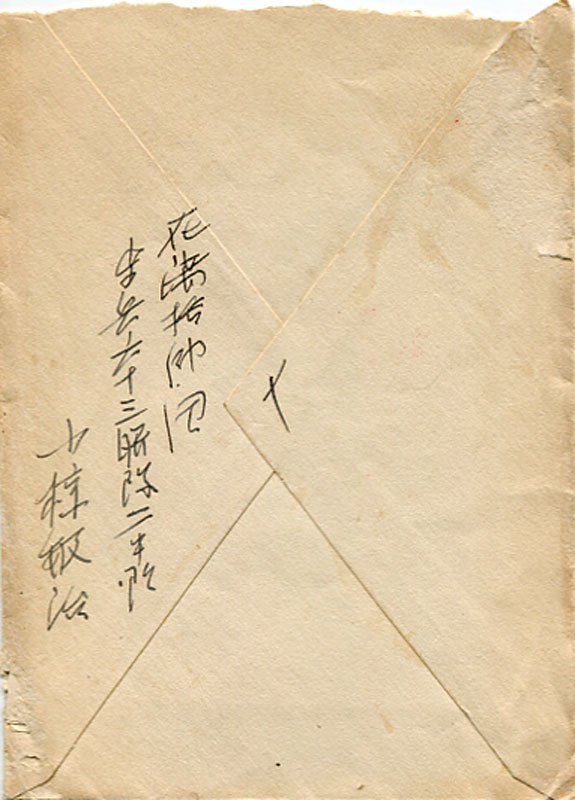 在満拾師団
歩兵六十三聯隊二中隊
小椋敬治
〆